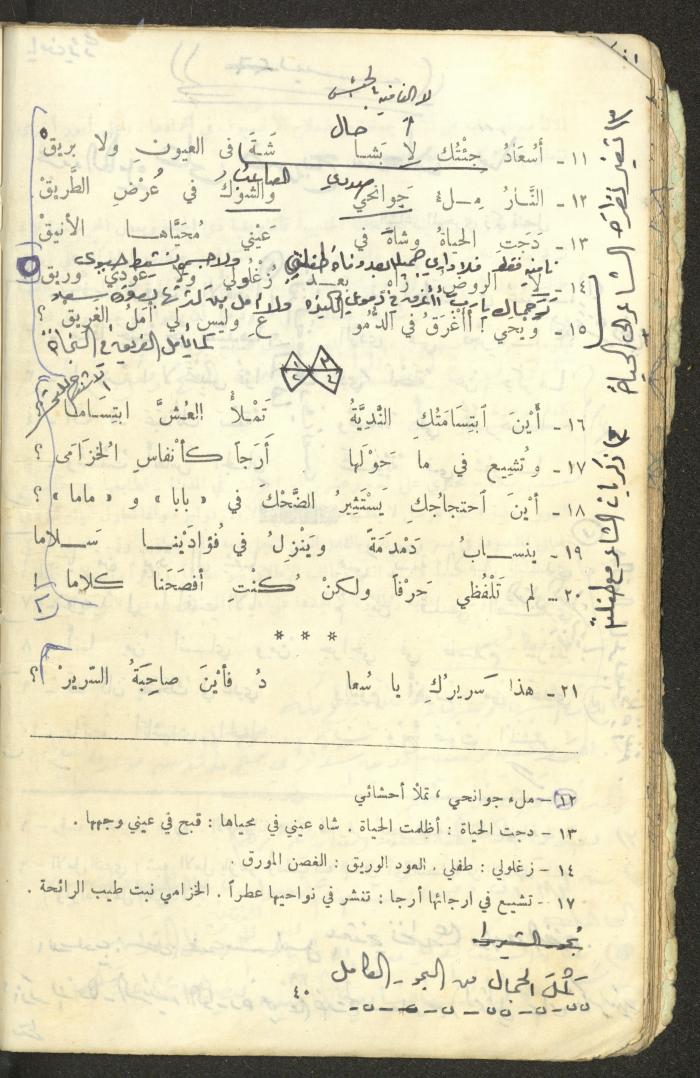 لا النافية للجنس
حال
١١ - أَسُعَادُ جِئْتُكِ لا بَشا شَةَ في العيونِ ولا بريقْ
١٢ - النَّارُ مِلءُ جَوانحي والشوْكُ في عُرْضِ الطَّريقْ
١٣ - دَجَتِ الحياةُ وشاهَ في عَيْني مُحَيَّاها الأنيقْ
١٤ - لا الروض زاهٍ بعد زُغْلُولي ولا عودي وريق
١٥ - وَيْحي ! أأَغْرَقُ في الدُّمو ع وليْس لي أمَلُ الغريق ؟
كأمل الغريق في النجاة
١٦ - أَيْنَ ٱبتِسَامَتُكِ النَّدِيَّةُ تَمْلأُ العُشَّ ابتِسَاما
١٧ - وتُشِيع في ما حَوْلَها أَرَجاً كأنْفاسِ الخزامى ؟
١٨ - أيْنَ ٱحتجاجُكِ يَسْتَثِيرُ الضَّحْكَ في « بابا » و « ماما » ؟
١٩ - ينسابُ دَمْدَمَةً ويَنْزِلُ في فُؤادَيْنا سَلاما
٢٠ - لم تَلْفُظي حَرْفاً ولكنْ كُنْتِ أفصَحَنا كلاما !
* * *
٢١ - هذا سَريرُكِ يا سُعا دُ فأيْنَ صاحِبَةُ السّريرْ ؟
١٢ - ملء جوانحي ، تملأ أحشائي
١٣ - دجت الحياة : أظلمت الحياة . شاه عيني في محياها : قبح في عيني وجهها .
١٤ - زغلولي : طفلي . العود الوريق : الغصن المورق .
١٧ - تشييع في ارجائها أرجا : تنشر في نواحيها عطراً . الخزامي نبت طيب الرائحة .
كَمُلَ الجمال من البحور الكامل
٤٠
٢) تغير نظرة الشاعر إلى الحياة
٣) ذكريات الشاعر مع طفلته